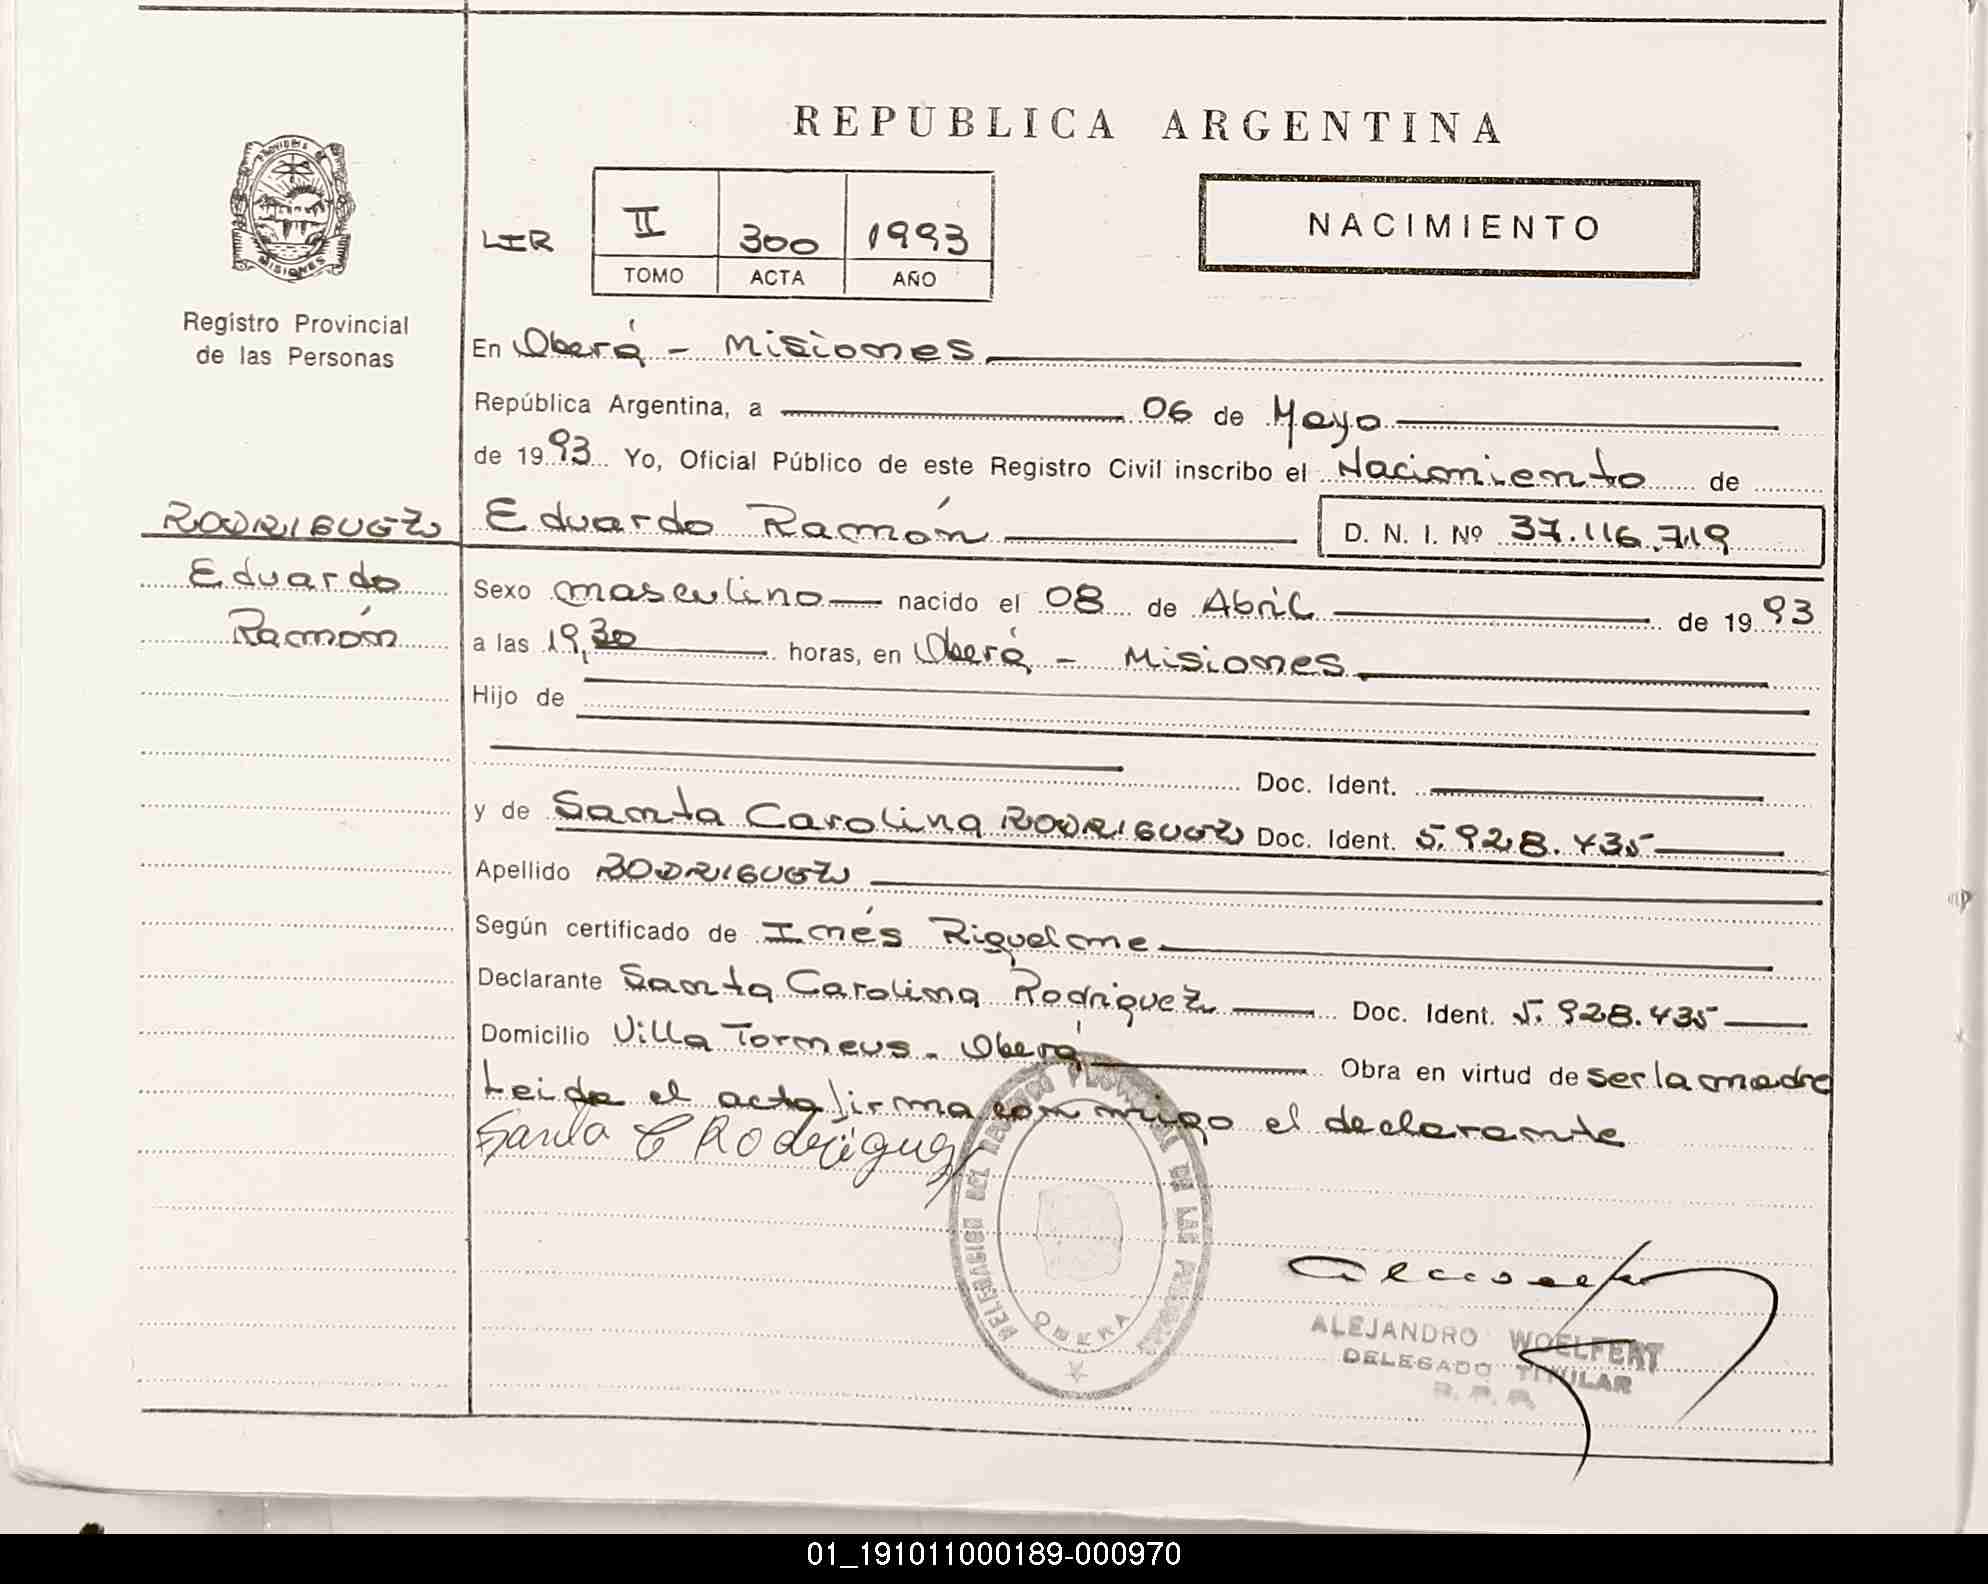 REPUBLICA ARGENTINA
PROVINCIA DE
MISIONES
Registro Provincial
de las Personas
LIR
II 300 1993
TOMO ACTA AÑO
NACIMIENTO
En Oberá - Misiones
República Argentina, a 06 de Mayo
de 1993 Yo, Oficial Público de este Registro Civil inscribo el Nacimiento de
RODRIGUEZ Eduardo Ramón D. N. I. Nº 37.116.719
Eduardo
Ramón
Sexo masculino nacido el 08 de Abril de 1993
a las 19,30 horas, en Oberá - Misiones
Hijo de
Doc. Ident.
y de Santa Carolina RODRIGUEZ Doc. Ident. 5.928.435
Apellido RODRIGUEZ
Según certificado de Inés Riquelme
Declarante Santa Carolina Rodriguez Doc. Ident. 5.928.435
Domicilio Villa Torneus - Oberá Obra en virtud de ser la madre
Leida el acta firma con migo el declarante
Santa C Rodriguez
DELEGACION DEL REGISTRO PROVINCIAL DE LAS PERSONAS
OBERA
ALEJANDRO WOELFERT
DELEGADO TITULAR
R. P. P.
01_191011000189-000970